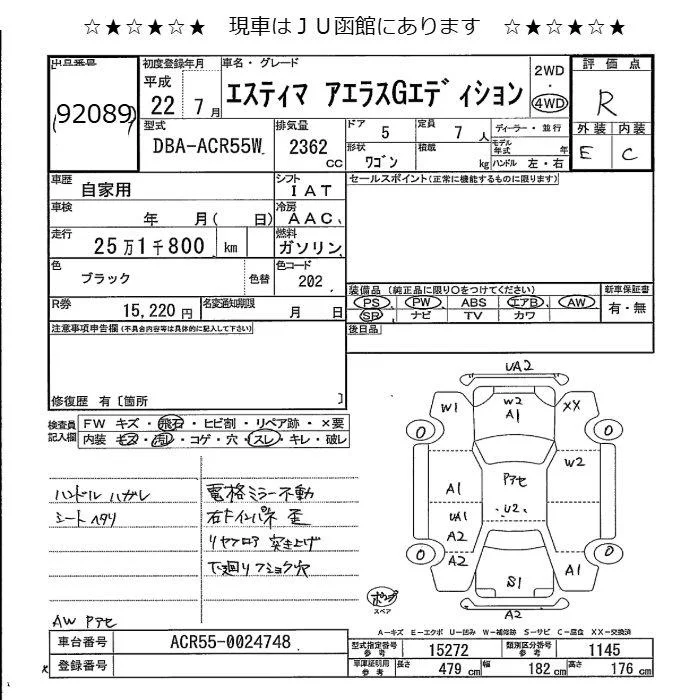 ☆★☆★☆★ 現車はＪＵ函館にあります ☆★☆★☆★
出品番号 92089
初度登録年月 平成 22 7月
車名・グレード エスティマ アエラスGエディション
2WD・4WD
評価点 R
外装 E 内装 C
型式 DBA-ACR55W
排気量 2362 CC
ドア 5
定員 7人
ディーラー・並行
形状 ワゴン
積載 kg
モデル年式 年
ハンドル 左・右
車歴 自家用
シフト IAT
セールスポイント(正常に機能するものに限ります)
車検 年 月( 日)
冷房 AAC
走行 25万1千800 km
燃料 ガソリン
色 ブラック 色替
色コード 202
装備品 (純正品に限り○をつけてください)
PS PW ABS エアB AW
SR ナビ TV カワ
新車保証書 有・無
R券 15,220円
名変通知期限 月 日
後日品
注意事項申告欄(不具合内容等は具体的に記入して下さい)
修復歴 有〔箇所 〕
検査員記入欄
FW キズ・飛石・ヒビ割・リペア跡・×要
内装 キズ・汚れ・コゲ・穴・スレ・キレ・破レ
ハンドル ハガレ
シート ヘタリ
AW アセ
電格ミラー不動
右トインパネ 歪
リヤフロア 突き上げ
下廻りフショク穴
UA2
W1
W2
A1
XX
0
0
アセ
W2
A1
U2
UA1
A2
A2
0
0
S1
A1
A2
スペア
A-キズ E-エクボ U-凹み W-補修跡 S-サビ C-腐食 XX-交換済
車台番号 ACR55-0024748
登録番号
型式指定番号 参考 15272
類別区分番号 参考 1145
車庫証明用 参考 長さ 479 cm 幅 182 cm 高さ 176 cm